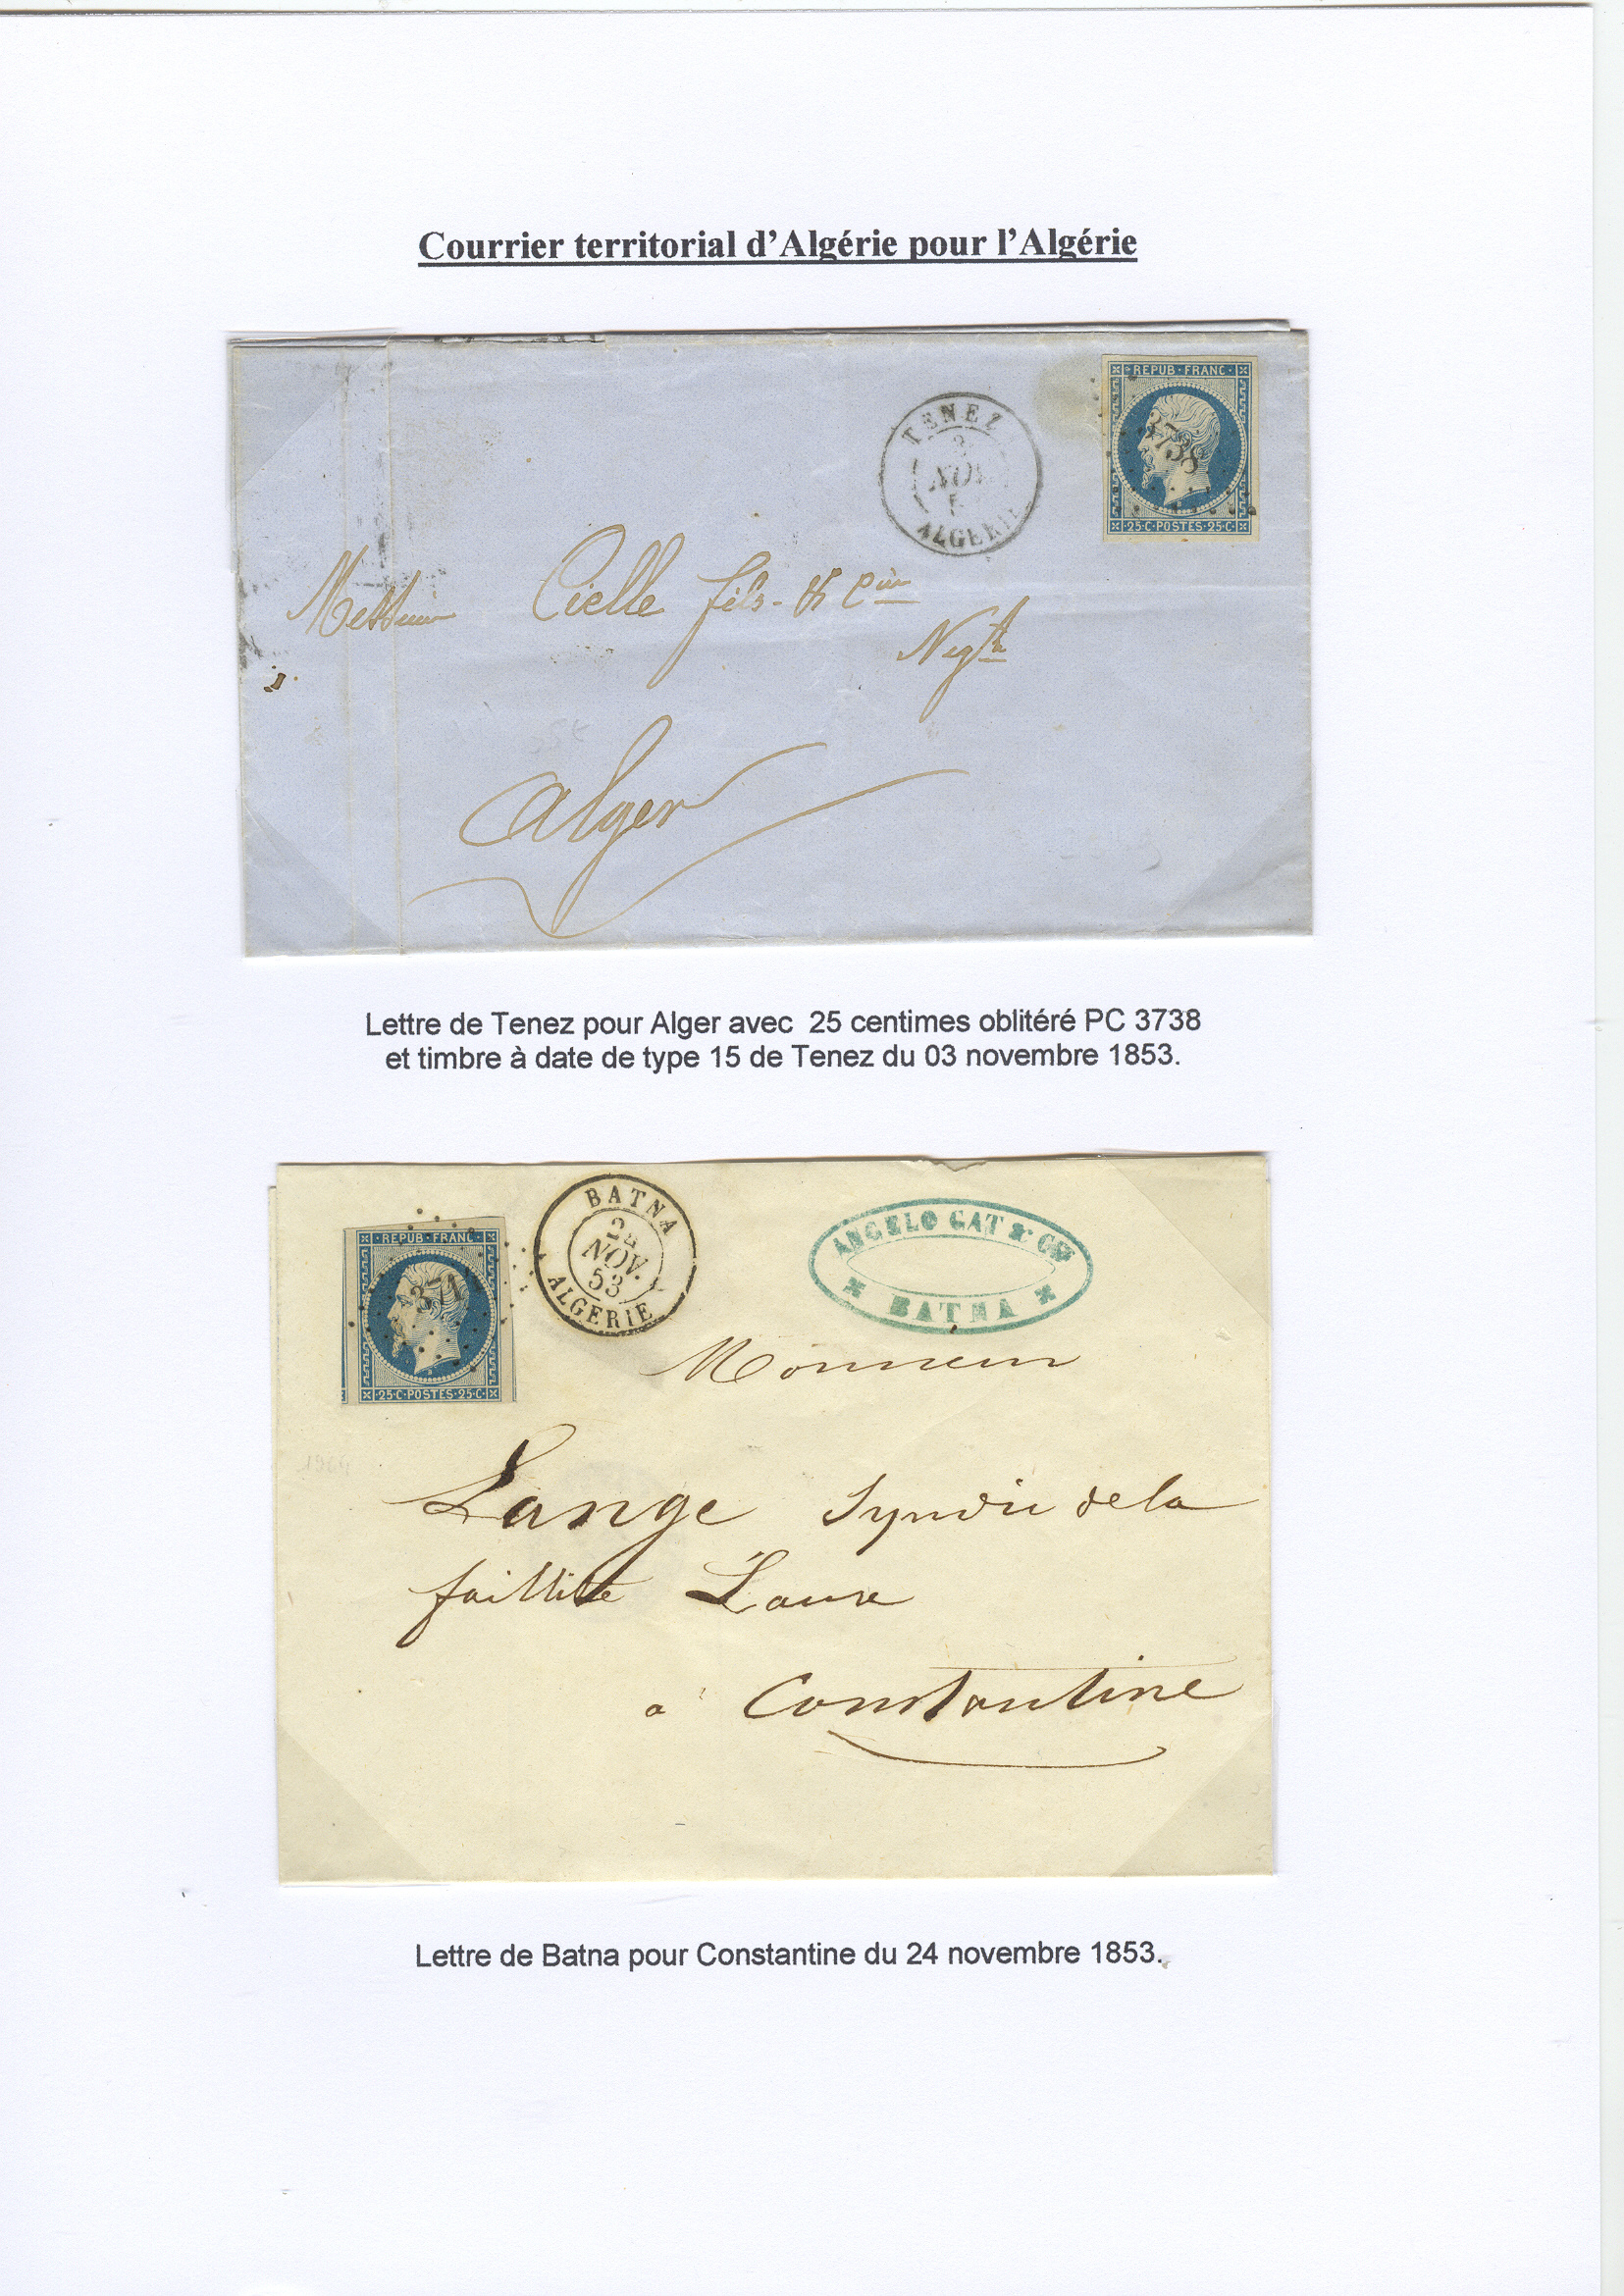 Courrier territorial d'Algérie pour l'Algérie
TENEZ
3
NOV
5
ALGERIE
REPUB·FRANC·
3738
·25·C·POSTES·25·C·
Messieurs Cielle fils & Cie
Negts
Alger
Lettre de Tenez pour Alger avec 25 centimes oblitéré PC 3738
et timbre à date de type 15 de Tenez du 03 novembre 1853.
·REPUB·FRANC·
371
·25·C·POSTES·25·C·
BATNA
24
NOV.
53
ALGERIE
ANGELO GAT & Cie
BATNA
Monsieur
Lange Syndic de la
faillite Laura
a Constantine
Lettre de Batna pour Constantine du 24 novembre 1853.